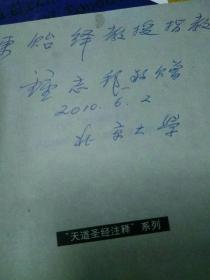 陈贻绎教授指教
钟志邦敬赠
2010.6.2
北京大学
“天道圣经注释”系列